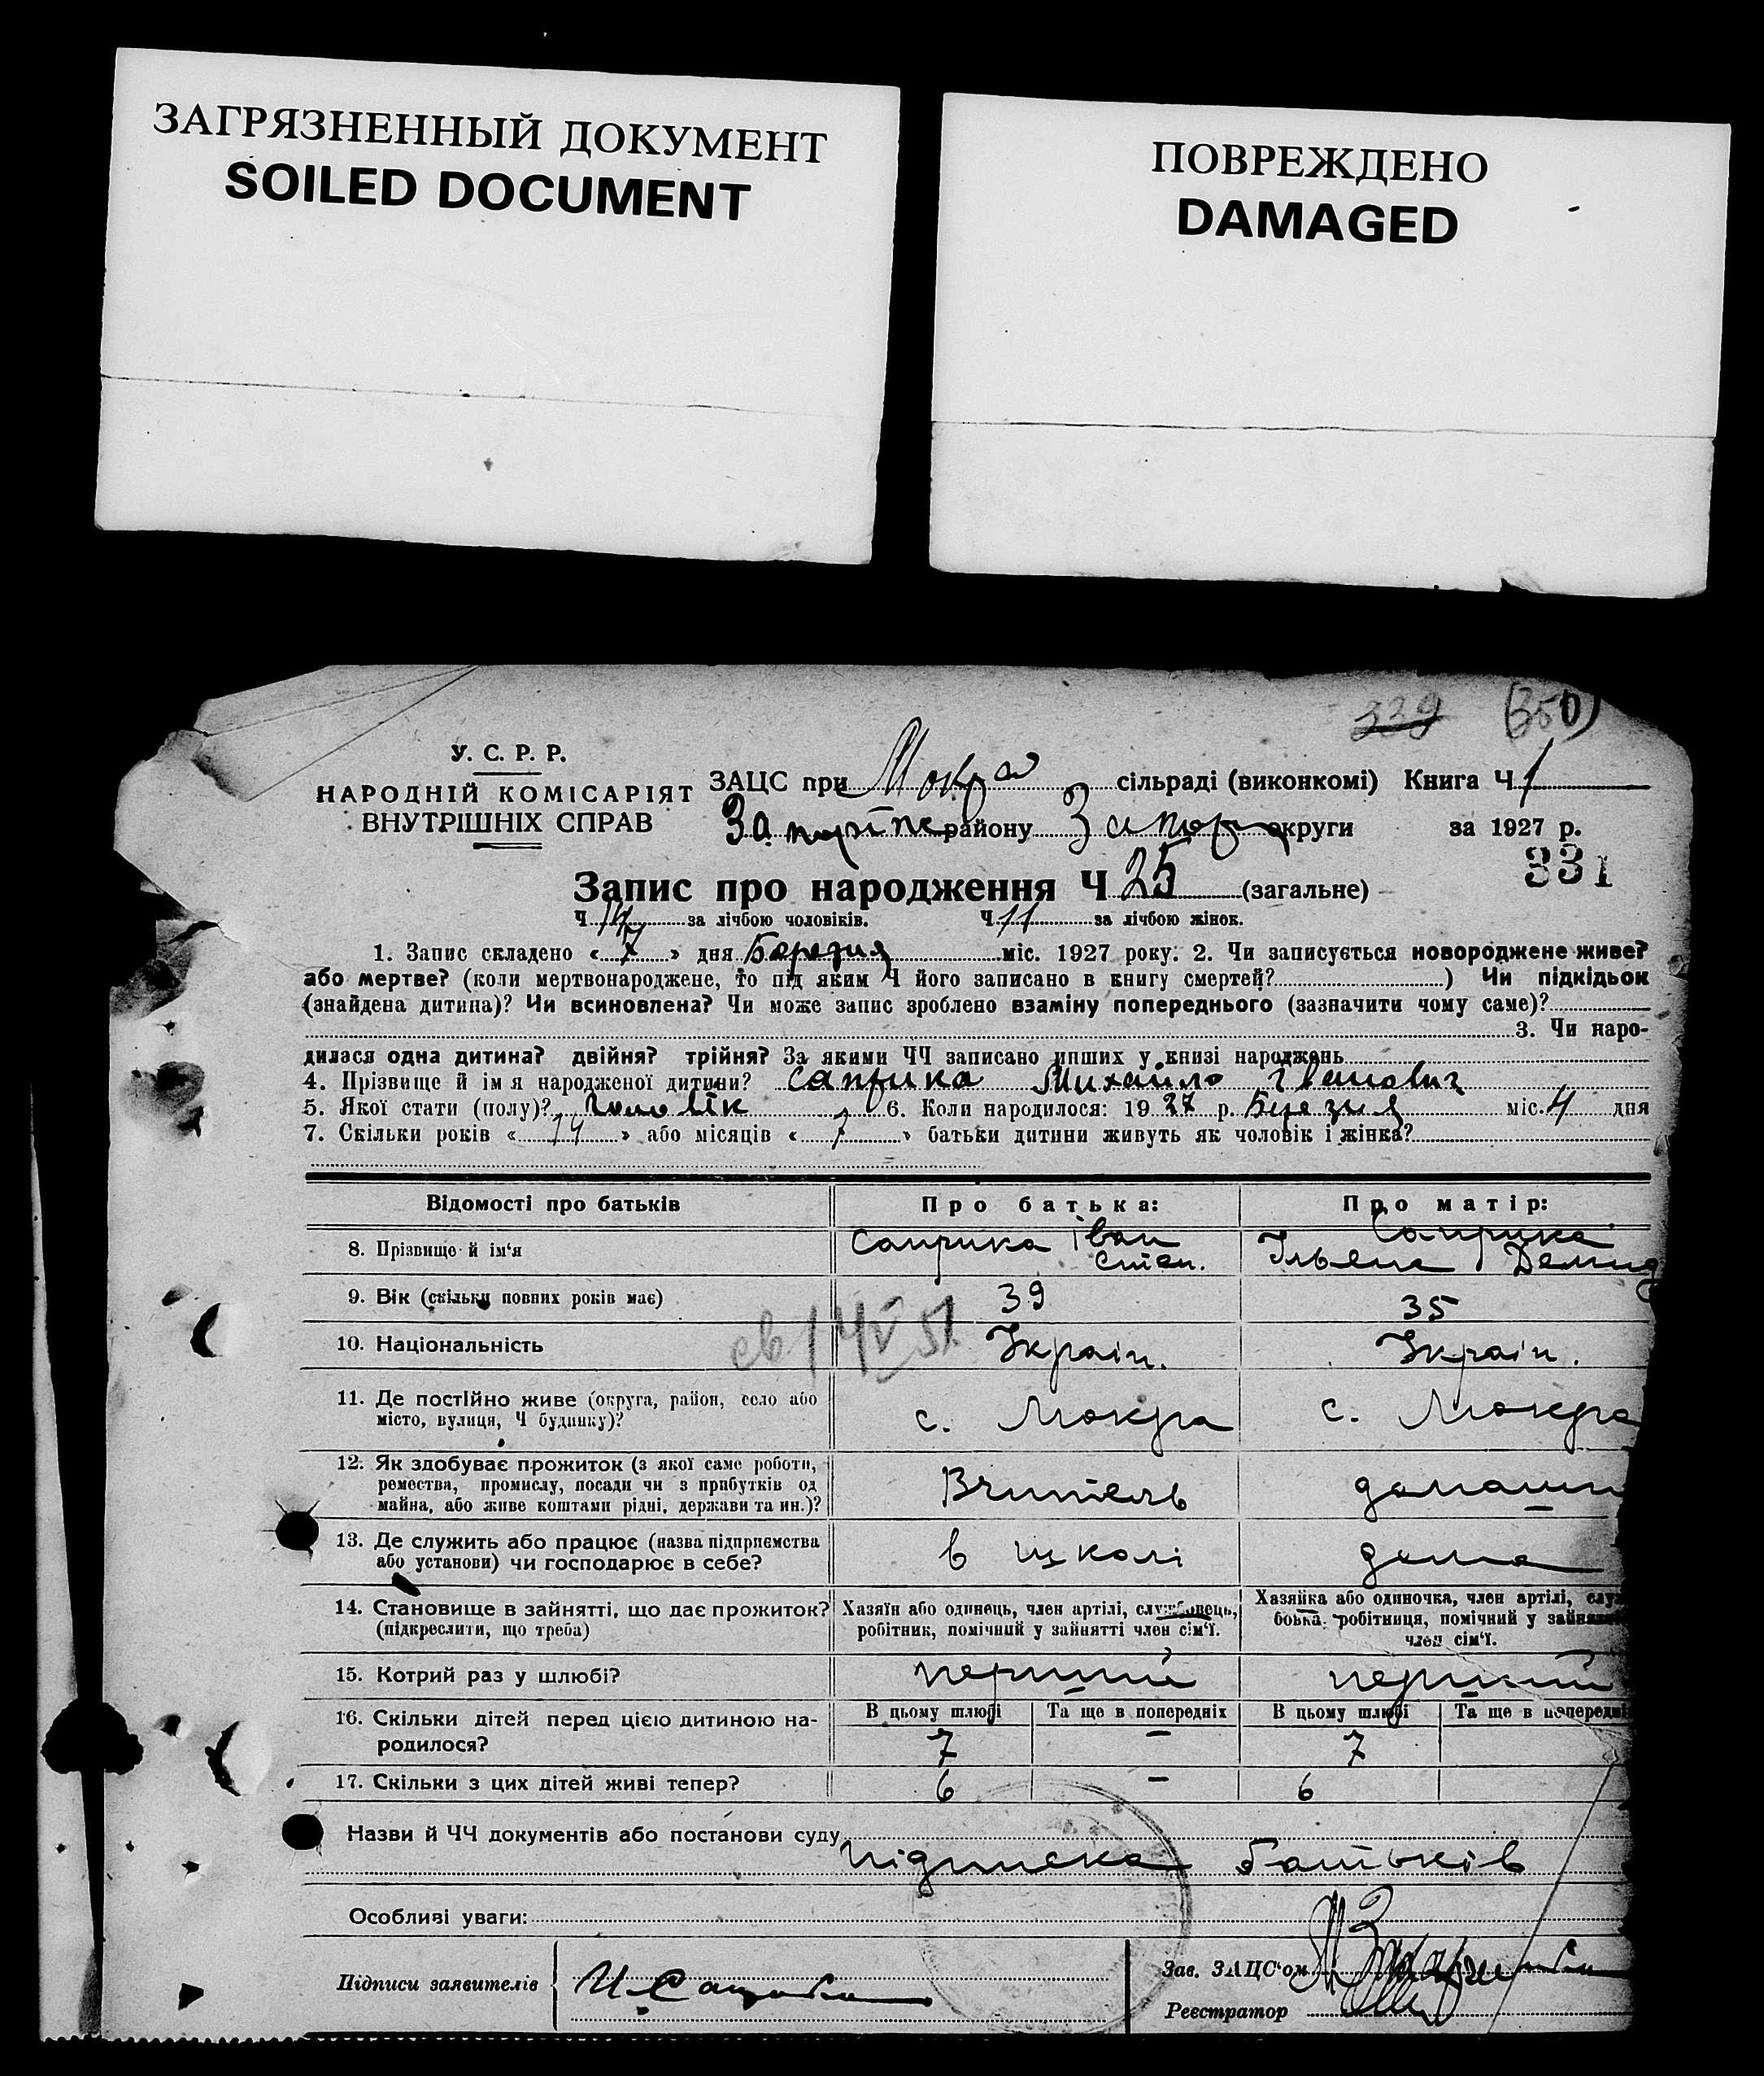 ЗАГРЯЗНЕННЫЙ ДОКУМЕНТ
SOILED DOCUMENT
ПОВРЕЖДЕНО
DAMAGED
339 (350)
У. С. Р. Р.
НАРОДНІЙ КОМІСАРІЯТ
ВНУТРІШНІХ СПРАВ
ЗАЦС при Мокра сільраді (виконкомі) Книга Ч 1
району Запор округи за 1927 р.
331
Запис про народження Ч 25 (загальне)
Ч 14 за лічбою чоловіків. Ч 11 за лічбою жінок.
1. Запис складено « 7 » дня Березня міс. 1927 року. 2. Чи записується новороджене живе?
або мертве? (коли мертвонароджене, то під яким Ч його записано в книгу смертей? ) Чи підкідьок
(знайдена дитина)? Чи всиновлена? Чи може запис зроблено взаміну попереднього (зазначити чому саме)?
3. Чи наро-
дилася одна дитина? двійня? трійня? За якими ЧЧ записано инших у книзі народжень
4. Прізвище й ім я народженої дитини? Саприка Михайло Іванович
5. Якої стати (полу)? Чоловік 6. Коли народилося: 1927 р. Березня міс. 4 дня
7. Скільки років « 14 » або місяців « » батьки дитини живуть як чоловік і жінка?
Відомості про батьків
Про батька:
Про матір:
8. Прізвище й ім'я
Саприка Іван
Степ.
Саприка
Демид
9. Вік (скільки повних років має)
39
35
10. Національність
Україн.
Україн.
11. Де постійно живе (округа, район, село або
місто, вулиця, Ч будинку)?
с. Мокра
с. Мокра
12. Як здобуває прожиток (з якої саме роботи,
ремества, промислу, посади чи з прибутків од
майна, або живе коштами рідні, держави та ин.)?
Вчитель
домашн
13. Де служить або працює (назва підприємства
або установи) чи господарює в себе?
в школі
дома
14. Становище в зайнятті, що дає прожиток?
(підкреслити, що треба)
Хазяїн або одинець, член артілі, службовець,
робітник, помічний у зайнятті член сім'ї.
Хазяйка або одиночка, член артілі, служ
бовка, робітниця, помічний у зайнятті
член сім'ї.
15. Котрий раз у шлюбі?
перший
перший
16. Скільки дітей перед цією дитиною на-
родилося?
В цьому шлюбі
Та ще в попередніх
В цьому шлюбі
Та ще в попередніх
7
—
7
17. Скільки з цих дітей живі тепер?
6
—
6
Назви й ЧЧ документів або постанови суду
підписка батьків
Особливі уваги:
Підписи заявителів
Зав. ЗАЦС'ом
Реєстратор